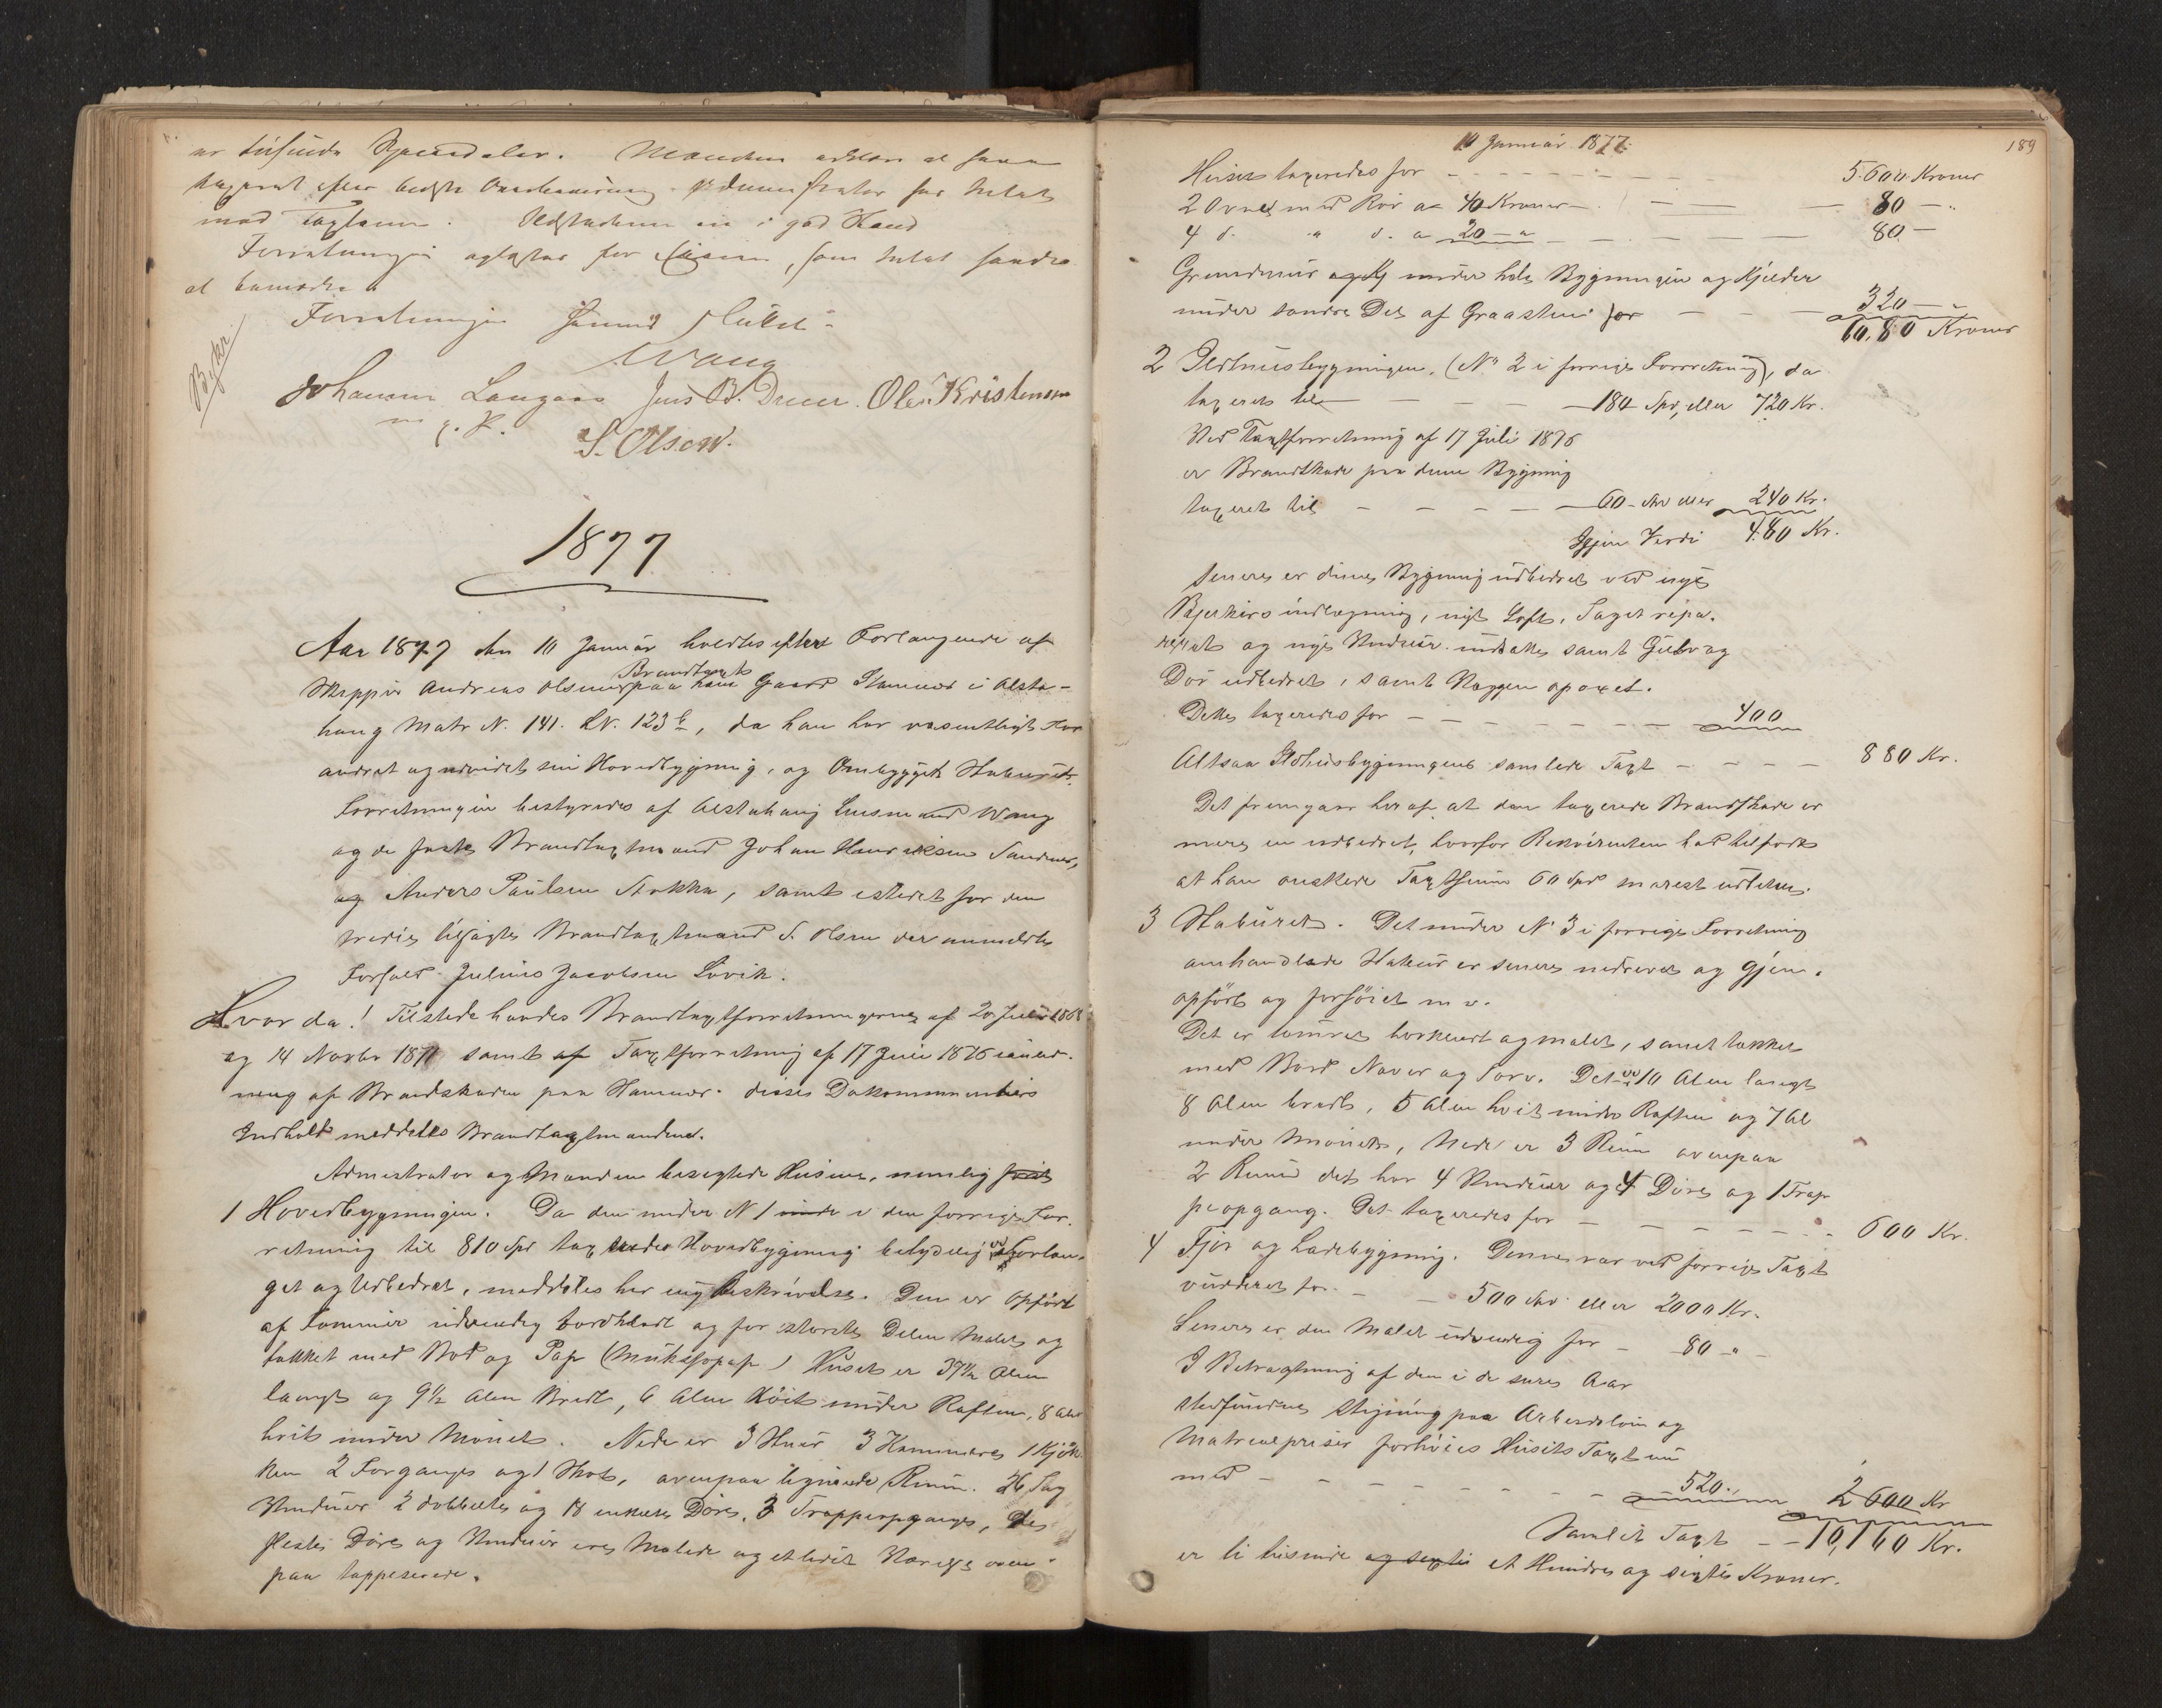 er tusinde Speciedaler. Mændene erklære at have
taxeret efter bedste Overbevisning. Administrator har Intet
mod Taxterne. Ildstederne ere i god Stand
Forretningen aflagtes for Eieren, som Intet havde
at bemærke
Forretningen saaledes sluttet
Wang
Johannes Jens B. Ole Kristensen
m. p. P.
S. Olsen.
Beskr.
1877
Aar 1877 den 10 Januar holdtes efter Forlangende af
Skipper Andreas Olsen Brandtaxt paa hans Gaard Stamnes i Alsta-
houg Matr N. 141. LN. 123 b, da han har væsentligt For
andret og udvidet sin Hovedbygning, og Ombygget Staburet.
Forretningen bestyredes af Alstahoug Lensmand Wang
og de faste Brandtaxtmænd Johan Henriksen Sandnes,
og Anders Paulsen Stokka, samt istedet for den
tredie tilsagte Brandtaxtmand S. Olsen der anmeldte
Forfald Julius Jacobsen Lövik.
Hvor da! Tilstede havdes Brandtaxtforretningerne af 20 Juli 1868
og 14 Novbr 1871 samt af Taxtforretning af 17 Juli 1876 i anled-
ning af Brandskaden paa Stamnes. Disses Dokummenters
Indhold meddeltes Brandtaxtmændene.
Admistrator og Mændene besigtede Husene, nemlig
1 Hovedbygningen. Da den under N 1 i den forrige For-
retning til 810 Spd taxerede Hovedbygning betydelig er Forlæn-
get og Udbedret, meddeles her ny Beskrivelse. Den er Opfört
af Tømmer udvendig bordklædt og for største Delen Malet og
tækket med Bord og Pap Huset er 37½ Alen
langt og 9½ Alen Bredt, 6 Alen Höit under Raften, 8 Alen
höit under Mønet. Nede er 3 Stuer 3 Kammere 1 Kjök-
ken 2 Forgange og 1 , ovenpaa lignende Rum. 26 Fag
Vinduer 2 dobbelte og 18 enkelte Döre. 3 Trappeopgange, de
fleste Döre og Vinduer ere Malede og et lidet Værelse oven
paa tappeserede.
10 Januar 1877.
189
Huset taxeredes for 5.600 Kroner
2 Ovne med Rör a 40 Kroner 80 —
4 d. " d. a 20 — " 80 —
Grundmur under hele Bygningen og Kjelder
under søndre Del af Graasten for 320 —
60,80 Kroner
2 Ildhusbygningen. (N° 2 i forrige Forretning), da
taxeret til 180 Spd, eller 720 Kr.
Ved Taxtforretning af 17 Juli 1876
er Brandskade paa denne Bygning
taxeret til 60 Spd eller 240 Kr.
Igjen Verdi 480 Kr.
Senere er denne Bygning udbedret ved nye
indlægning, nyt Loft, Taget repa-
reret og nye Vinduer indsatte samt Gulv og
Dör udbedret, samt Væggen opoxet.
Dette taxeredes for 400
Altsaa Ildhusbygningens samlede Taxt 880 Kr.
Det fremgaar heraf at den taxerede Brandskade er
mere en udbedret, hvorfor Rekvirenten had tilföie
at han önskede Taxtsum 60 Spd snarest udbetalt.
3 Staburet. Det under N° 3 i forrige Forretning
omhandlede Stabur er senere nedrevet og gjen-
opfört og forhöiet m. v.
Det er tömret bordklædt og malet, samt tækket
med Bord Næver og Torv. Det er 10 Alen langt
8 Alen bredt, 5 Alen höit under Raften og 7 Al
under Mönet, Nede er 3 Rum ovenpaa
2 Rum det har 4 Vinduer og 4 Döre og 1 Trap
peopgang. Det taxeredes for 600 Kr.
4 Fjös og Ladebygning. Denne var ved forrige Taxt
vurderet for 500 Spd eller 2000 Kr.
Senere er den Malet udvendig for 80 "
I Betragtning af den i de senere Aar
stedfundne Stigning paa Arbeidslön og
Matrealpriser forhöies Husets Taxt nu
med 520. 2 600 Kr
Samlet Taxt 10,160 Kr.
er ti tusinde og sexti et Hundre og sexti Kroner.